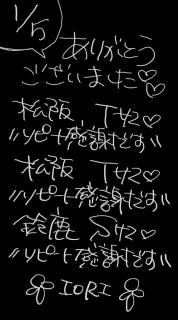 1/5
ありがとう
ございました♡♡
松阪 T42♡
〃リピート感謝だす〃
松阪 T42♡
〃リピート感謝だす〃
鈴鹿 S42♡
〃リピート感謝だす〃
IORI